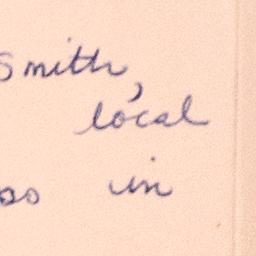 Smith,
local
in